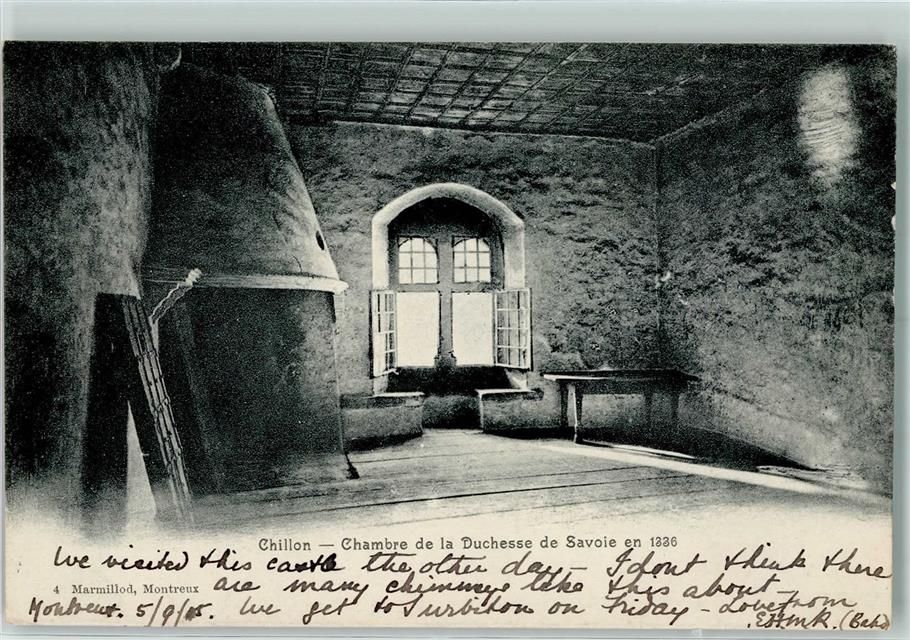 Chillon — Chambre de la Duchesse de Savoie en 1336
We visited this castle the other day – I dont think there
4 Marmillod, Montreux
are many chimneys like this about –
Montreux. 5/9/05. We get to on Friday – Love from